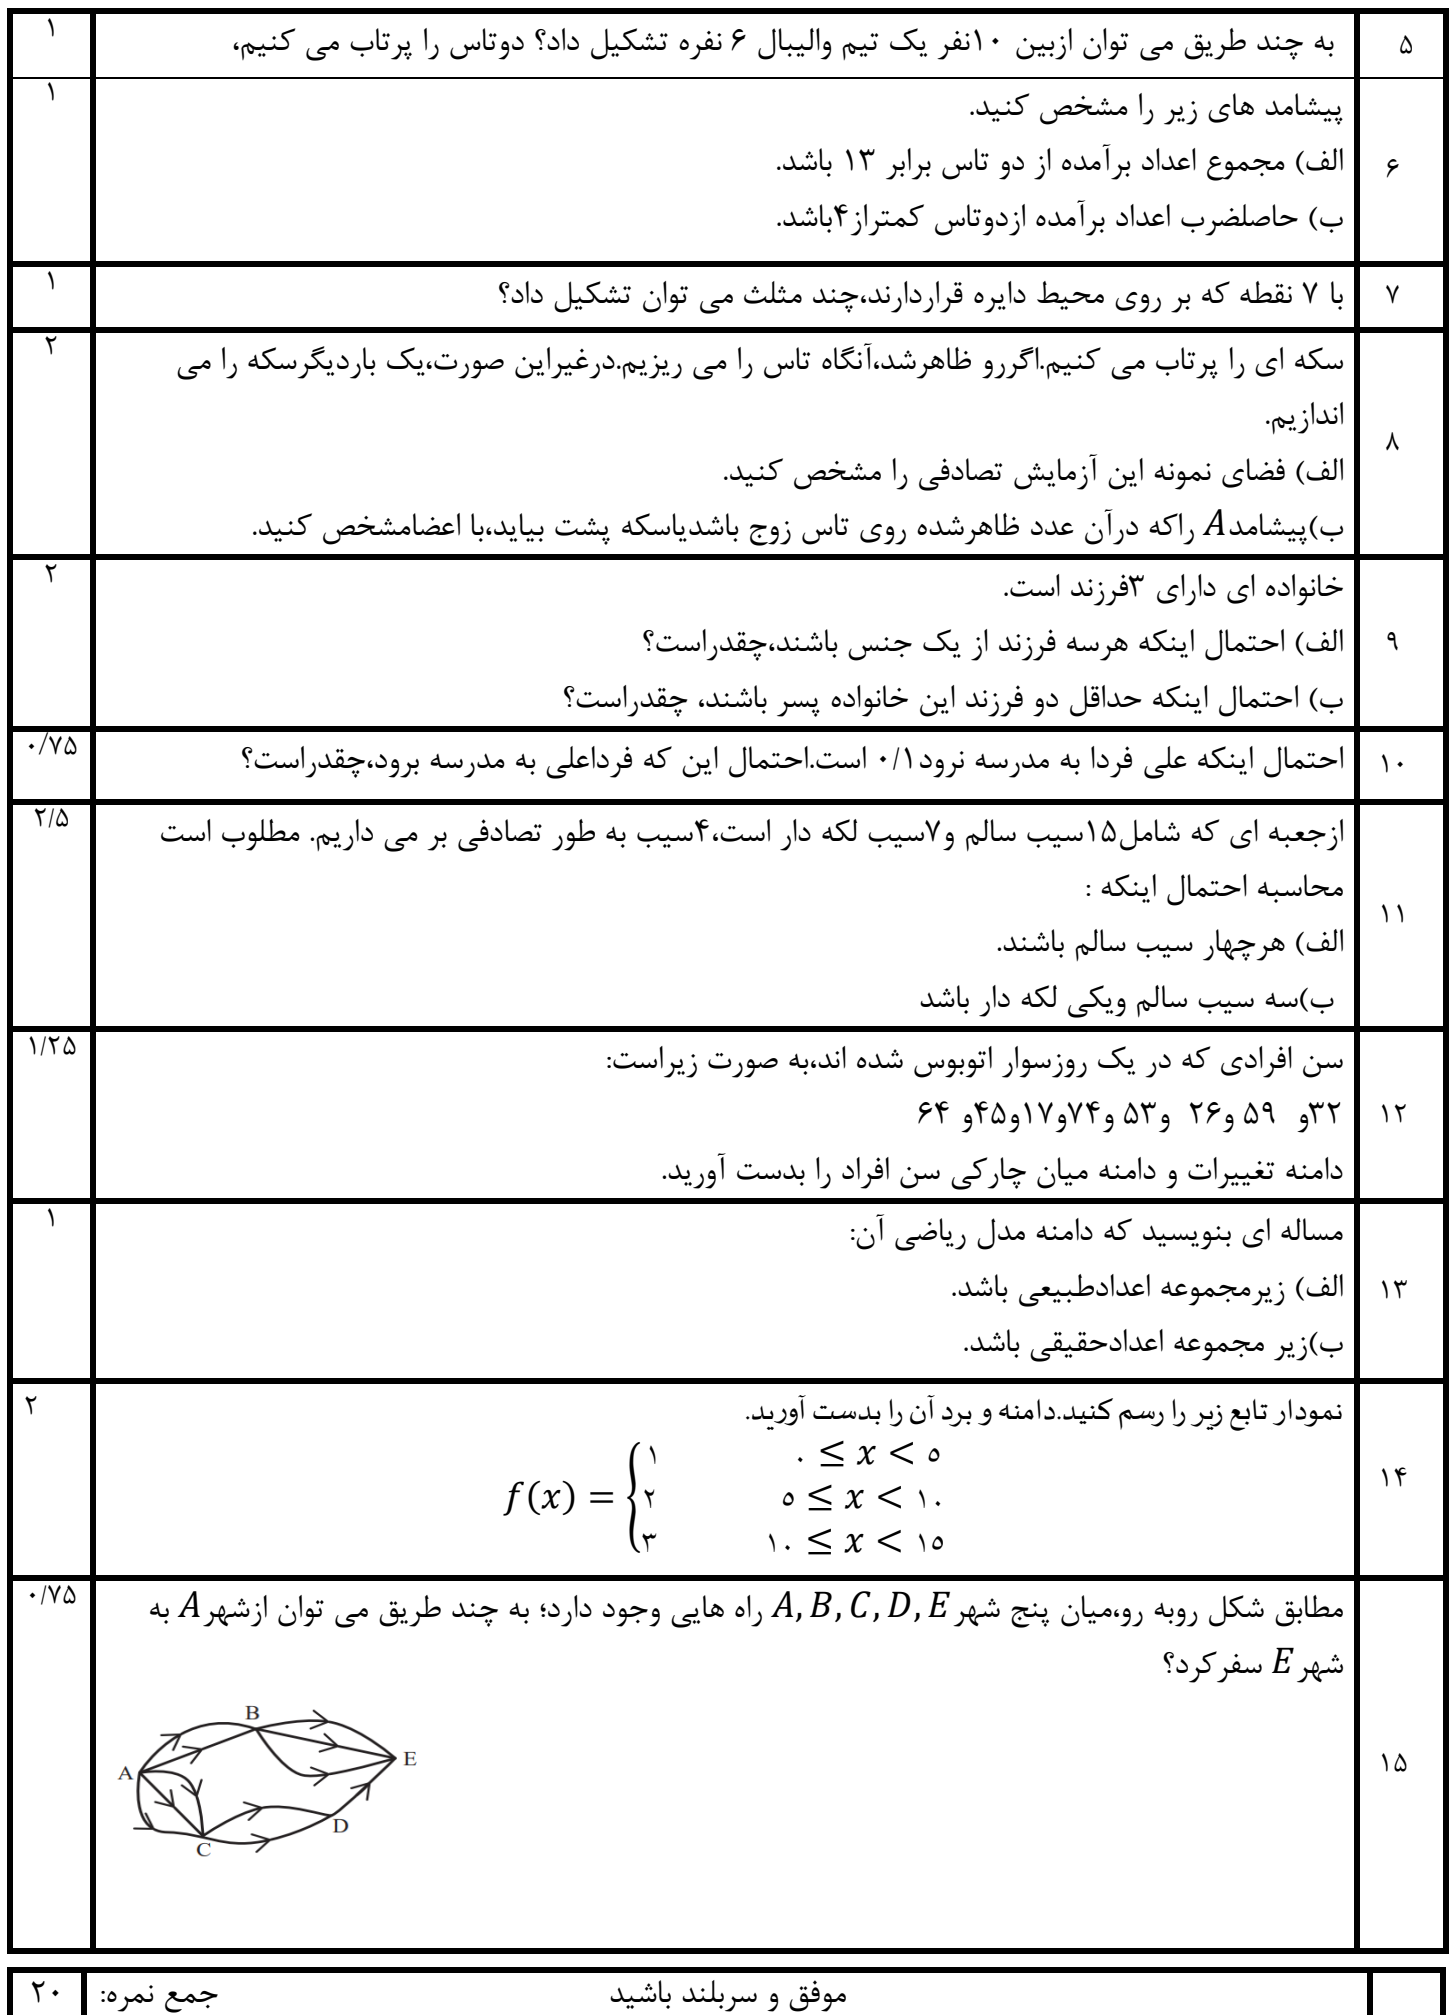 ۵ به چند طریق می توان ازبین ۱۰نفر یک تیم والیبال ۶ نفره تشکیل داد؟ دوتاس را پرتاب می کنیم، ۱
پیشامد های زیر را مشخص کنید. ۱
۶ الف) مجموع اعداد برآمده از دو تاس برابر ۱۳ باشد.
ب) حاصلضرب اعداد برآمده ازدوتاس کمتراز۴باشد.
۷ با ۷ نقطه که بر روی محیط دایره قراردارند،چند مثلث می توان تشکیل داد؟ ۱
سکه ای را پرتاب می کنیم.اگررو ظاهرشد،آنگاه تاس را می ریزیم.درغیراین صورت،یک باردیگرسکه را می ۲
اندازیم.
۸
الف) فضای نمونه این آزمایش تصادفی را مشخص کنید.
ب)پیشامدA راکه درآن عدد ظاهرشده روی تاس زوج باشدیاسکه پشت بیاید،با اعضامشخص کنید.
خانواده ای دارای ۳فرزند است. ۲
۹ الف) احتمال اینکه هرسه فرزند از یک جنس باشند،چقدراست؟
ب) احتمال اینکه حداقل دو فرزند این خانواده پسر باشند، چقدراست؟
۱۰ احتمال اینکه علی فردا به مدرسه نرود۰/۱ است.احتمال این که فرداعلی به مدرسه برود،چقدراست؟ ۰/۷۵
ازجعبه ای که شامل۱۵سیب سالم و۷سیب لکه دار است،۴سیب به طور تصادفی بر می داریم. مطلوب است ۲/۵
محاسبه احتمال اینکه :
۱۱
الف) هرچهار سیب سالم باشند.
ب)سه سیب سالم ویکی لکه دار باشد
سن افرادی که در یک روزسوار اتوبوس شده اند،به صورت زیراست: ۱/۲۵
۱۲ ۳۲و ۵۹ و۲۶ و۵۳ و۷۴و۱۷و۴۵و ۶۴
دامنه تغییرات و دامنه میان چارکی سن افراد را بدست آورید.
مساله ای بنویسید که دامنه مدل ریاضی آن: ۱
۱۳ الف) زیرمجموعه اعدادطبیعی باشد.
ب)زیر مجموعه اعدادحقیقی باشد.
نمودار تابع زیر را رسم کنید.دامنه و برد آن را بدست آورید. ۲
۱ ۰ ≤ x < ۵
۱۴ f(x) = { ۲ ۵ ≤ x < ۱۰
۳ ۱۰ ≤ x < ۱۵
مطابق شکل روبه رو،میان پنج شهرA, B, C, D, E راه هایی وجود دارد؛ به چند طریق می توان ازشهرA به ۰/۷۵
شهرE سفرکرد؟
B
۱۵
E
A
D
C
موفق و سربلند باشید جمع نمره: ۲۰